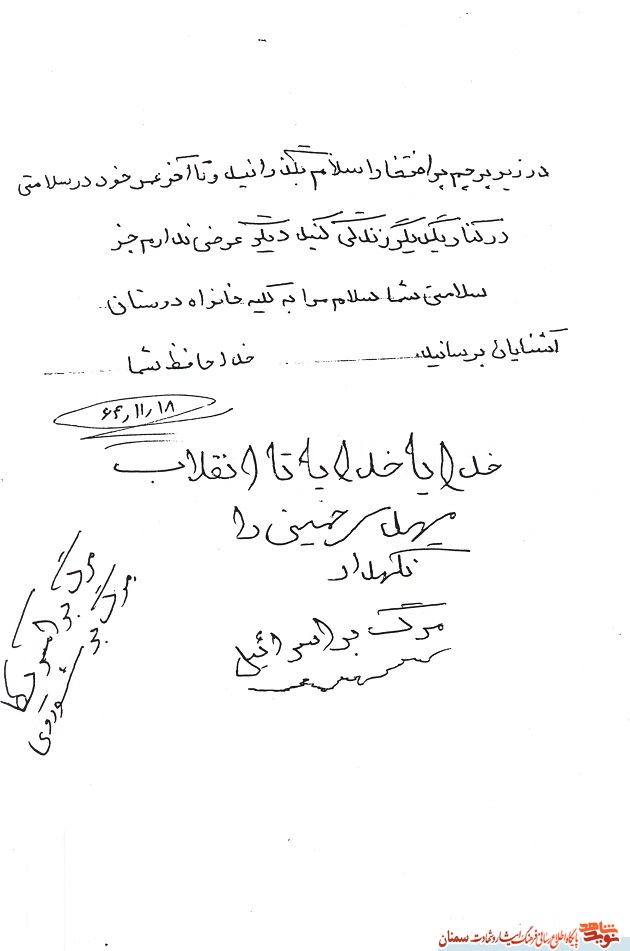 در زیر پرچم پر افتخار اسلام بگذرانید و تا آخر عمر خود در سلامتی
در کنار یکدیگر زندگی کنید دیگر عرضی ندارم جز
سلامتی شما سلام مرا به کلیه خانواه دوستان
آشنایان برسانید خدا حافظ شما
۶۴/۱۱/۱۸
خدایا خدایا تا انقلاب
مهدی خمینی را
نگهدار
مرگ بر اسرائیل
مرگ بر امریکا
مرگ بر شوروی
نوید شاهد
پایگاه اطلاع رسانی فرهنگ ایثار و شهادت سمنان